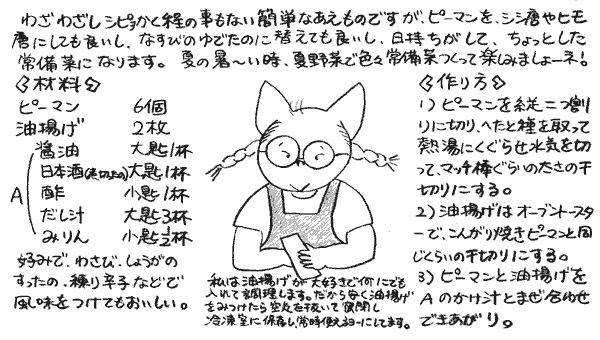 わざわざレシピ書く程の事もない簡単なあえものですが、ピーマンを、シシ唐やヒモ
唐にしても良いし、なすびのゆでたのに替えても良いし、日持ちがして、ちょっとした
常備菜になります。夏の暑〜い時、夏野菜で色々常備菜つくって楽しみましょーネ!
<材料>
ピーマン 6個
油揚げ 2枚
A
醤油 大匙1杯
日本酒(煮切ったの)大匙1杯
酢 小匙1杯
だし汁 大匙3杯
みりん 小匙1/2杯
好みで、わさび、しょうがの
すったの、練り辛子などで
風味をつけてもおいしい。
私は油揚げが大好きで何にでも
入れて調理します。だから安く油揚げ
をみつけたら空気を抜いて密閉し
冷凍室に保存し常時使えるよーにしてます。
<作り方>
1)ピーマンを縦二つ割
りに切り、へたと種を取って
熱湯にくぐらせ水気を切
って、マッチ棒ぐらいの太さの千
切りにする。
2)油揚げはオーブントースタ
ーで、こんがり焼きピーマンと同
じくらいの千切りにする。
3)ピーマンと油揚げを
Aのかけ汁とまぜ合わせ
できあがり。